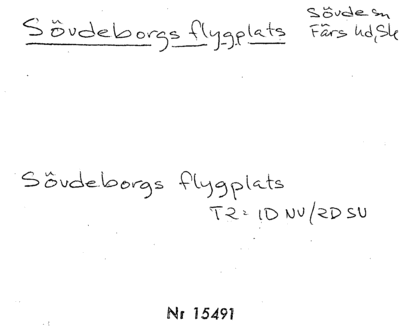 Sövdeborgs flygplats
Sövde sn
Färs hd, Sk
Sövdeborgs flygplats
T2 = 1D NV/2D SV
Nr 15491